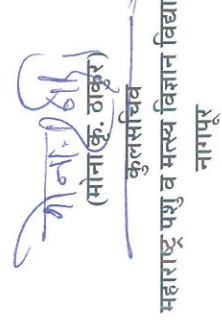 (मोना कृ. ठाकुर)
कुलसचिव
महाराष्ट्र पशु व मत्स्य विज्ञान विद्या
नागपूर